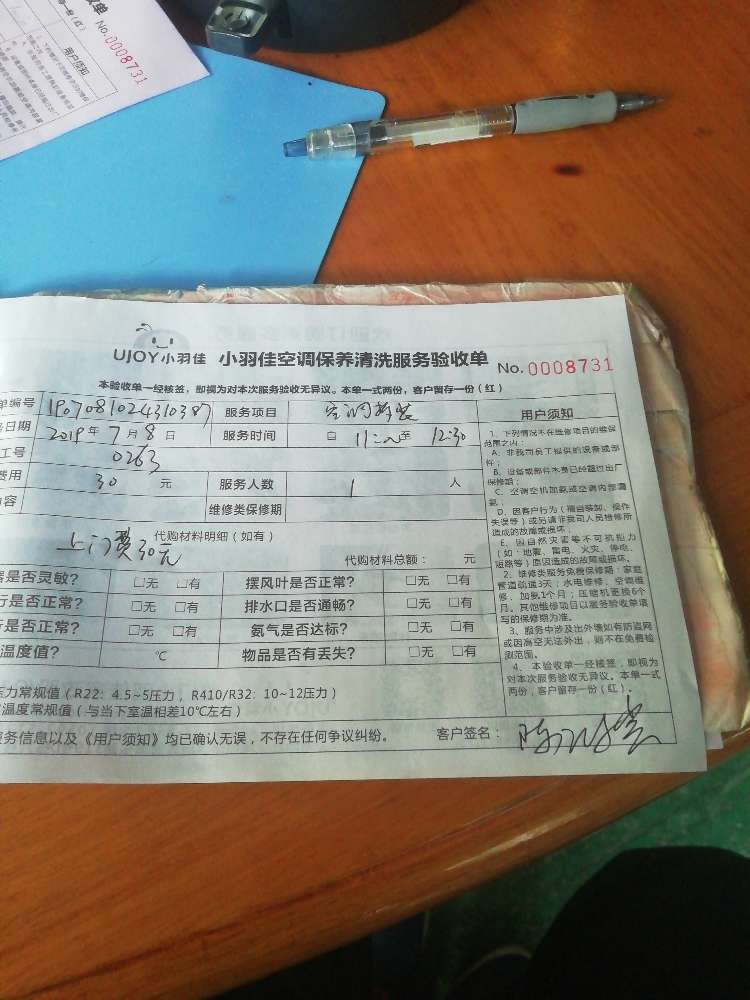 收单
No.0008731
用户须知
UJOY小羽佳 小羽佳空调保养清洗服务验收单 No.0008731
本验收单一经核签，即视为对本次服务验收无异议。本单一式两份，客户留存一份（红）
单编号 1907081024310387 服务项目 空调拆装 用户须知
务日期 2019年7月8日 服务时间 自 11:00 至 12:30
工号 0263
费用 30 元 服务人数 1 人
内容 维修类保修期
代购材料明细（如有）
上门费30元
代购材料总额： 元
器是否灵敏？ □无 □有 摆风叶是否正常？ □无 □有
行是否正常？ □无 □有 排水口是否通畅？ □无 □有
是否正常？ □无 □有 氨气是否达标？ □无 □有
温度值？ ℃ 物品是否有丢失？ □无 □有
压力常规值（R22：4.5~5压力，R410/R32：10~12压力）
温度常规值（与当下室温相差10℃左右）
服务信息以及《用户须知》均已确认无误，不存在任何争议纠纷。 客户签名：
1、下列情况不在维修项目的维保
范围之内：
A、非我司员工提供的设备或部
件；
B、设备或部件本身已经超过出厂
保修期；
C、空调空机加氨或空调内部漏
氨；
D、因客户行为（擅自装卸、操作
失误等）或另请非我司人员检修所
造成的故障或损坏；
E、因自然灾害等不可抗拒力
（如：地震、雷电、火灾、停电、
短路等）原因造成的故障或损坏。
2、维修类服务免费保修期：家庭
管道疏通3天；水电维修、空调维
修、加氨1个月；压缩机更换6个
月。其他维修项目以服务验收单填
写的保修期为准。
3、服务中涉及出外墙如有防盗网
或因高空无法外出，则不在免费检
测范围。
4、本验收单一经核签，即视为
对本次服务验收无异议。本单一式
两份，客户留存一份（红）。